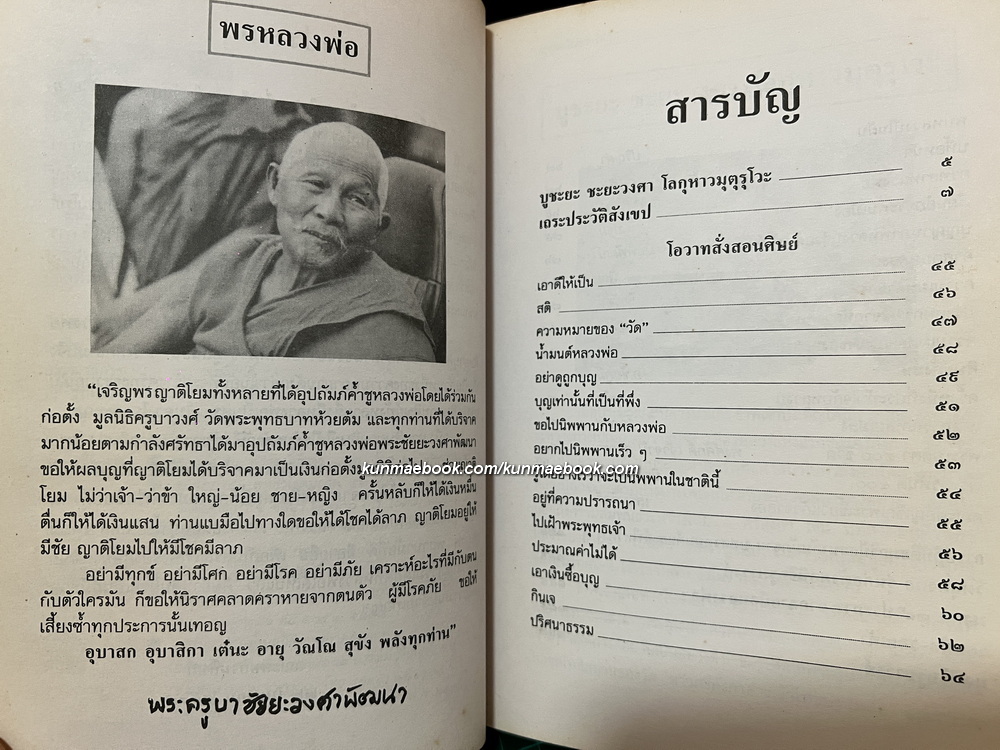 พรหลวงพ่อ
“เจริญพรญาติโยมทั้งหลายที่ได้อุปถัมภ์ค้ำชูหลวงพ่อโดยได้ร่วมกัน
ก่อตั้ง มูลนิธิครูบาวงศ์ วัดพระพุทธบาทห้วยต้ม และทุกท่านที่ได้บริจาค
มากน้อยตามกำลังศรัทธาได้มาอุปถัมภ์ค้ำชูหลวงพ่อพระชัยยะวงศาพัฒนา
ขอให้ผลบุญที่ญาติโยมได้บริจาคมาเป็นเงินก่อตั้ง
โยม ไม่ว่าเจ้า-ว่าข้า ใหญ่-น้อย ชาย-หญิง ครั้นหลับก็ให้ได้เงินหมื่น
ตื่นก็ให้ได้เงินแสน ท่านแบมือไปทางใดขอให้ได้โชคได้ลาภ ญาติโยมอยู่ให้
มีชัย ญาติโยมไปให้มีโชคมีลาภ
อย่ามีทุกข์ อย่ามีโศก อย่ามีโรค อย่ามีภัย เคราะห์อะไรที่มีกับตน
กับตัวใครมัน ก็ขอให้นิราศคลาดคราหายจากตนตัว ผู้มีโรคภัย ขอให้
เสี้ยงซ้ำทุกประการนั้นเทอญ
อุบาสก อุบาสิกา เต๋นะ อายุ วัณโณ สุขัง พลังทุกท่าน”
พระครูบาชัยยะวงศาพัฒนา
kunmaebook.com/kunmaebook.com
สารบัญ
บูชะยะ ชะยะวงศา โลกุหาวมุตุรุโวะ ๕
เถระประวัติสังเขป ๗
โอวาทสั่งสอนศิษย์
เอาดีให้เป็น ๔๕
สติ ๔๖
ความหมายของ “วัด” ๔๗
น้ำมนต์หลวงพ่อ ๔๘
อย่าดูถูกบุญ ๔๙
บุญเท่านั้นที่เป็นที่พึ่ง ๕๑
ขอไปนิพพานกับหลวงพ่อ ๕๒
อยากไปนิพพานเร็ว ๆ ๕๓
รู้ได้อย่างไรว่าจะไปนิพพานในชาตินี้ ๕๔
อยู่ที่ความปรารถนา ๕๕
ไปเฝ้าพระพุทธเจ้า ๕๖
ประมาณค่าไม่ได้ ๕๘
เอาเงินซื้อบุญ ๖๐
กินเจ ๖๒
ปริศนาธรรม ๖๔